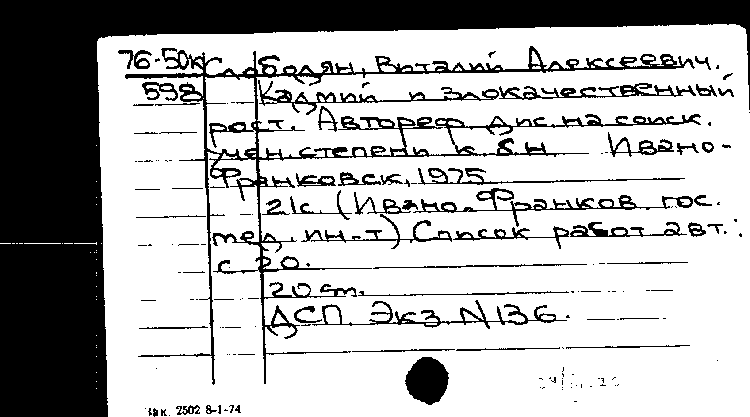 76-50к Слободян, Виталий Алексеевич.
598 Кадмий и злокачественный
рост. Автореф. дис. на соиск.
учен. степени к. б. н Ивано-
Франковск, 1975
21с. (Ивано-Франков. гос.
мед. ин-т) Список работ авт.:
с 20.
20 см.
ДСП. Экз. N136.
Зак. 2502 8-1-74